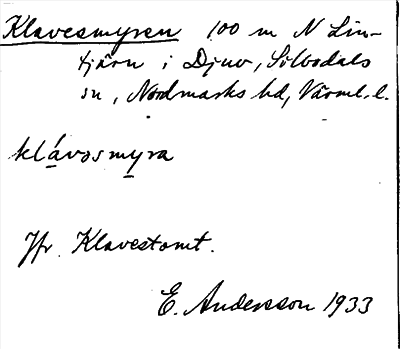 Klavesmyren 100 m N Lin-
tjärn i Djuv, Silbodals
sn, Nordmarks hd, Värml. l.
klávosmyra
Jfr. Klavestomt.
E. Andersson 1933